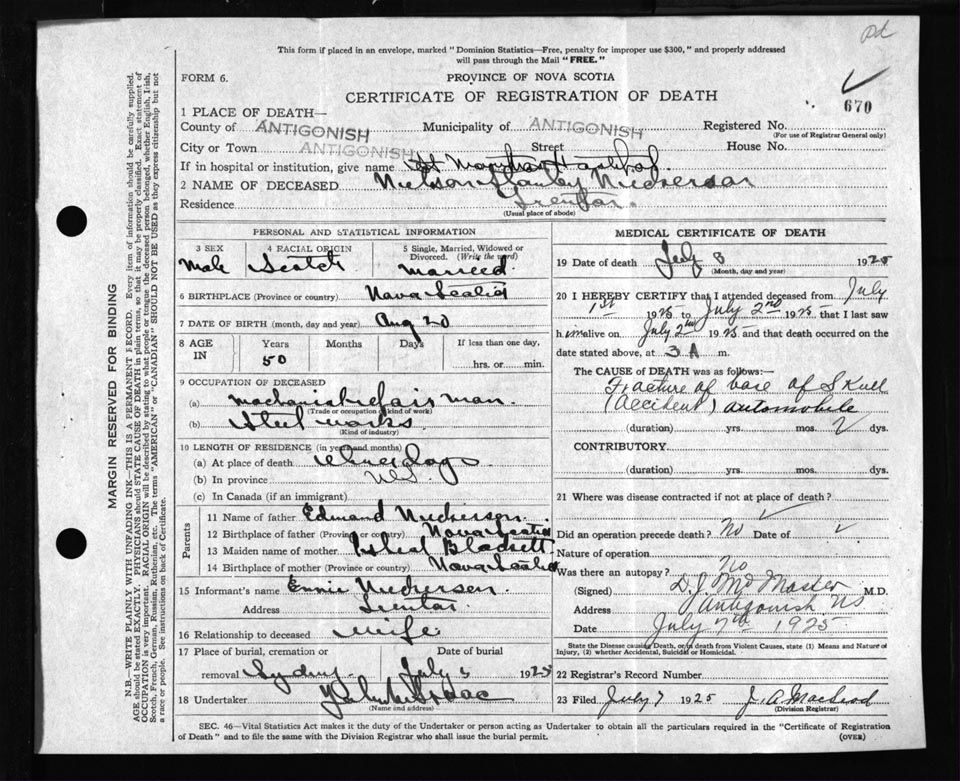 Pd
This form if placed in an envelope, marked "Dominion Statistics—Free, penalty for improper use $300," and properly addressed
will pass through the Mail "FREE."
FORM 6.
PROVINCE OF NOVA SCOTIA
670
CERTIFICATE OF REGISTRATION OF DEATH
1 PLACE OF DEATH—
County of ANTIGONISH Municipality of ANTIGONISH Registered No.
(For use of Registrar General only)
City or Town ANTIGONISH Street House No.
If in hospital or institution, give name St Hospital
2 NAME OF DECEASED Stanley Nickerson
Residence Trenton
(Usual place of abode)
PERSONAL AND STATISTICAL INFORMATION
3 SEX 4 RACIAL ORIGIN 5 Single, Married, Widowed or
Divorced. (Write the word)
Male Scotch Married
6 BIRTHPLACE (Province or country) Nova Scotia
7 DATE OF BIRTH (month, day and year) Aug 20
8 AGE IN Years Months Days If less than one day,
50 hrs. or min.
9 OCCUPATION OF DECEASED
(a) man
(Trade or occupation or kind of work)
(b) Steel works
(Kind of industry)
10 LENGTH OF RESIDENCE (in years and months)
(a) At place of death days
(b) In province NS
(c) In Canada (if an immigrant)
Parents
11 Name of father Edmund Nickerson
12 Birthplace of father (Province or country) Nova Scotia
13 Maiden name of mother Blackett
14 Birthplace of mother (Province or country) Nova Scotia
15 Informant's name Nickerson
Address Trenton
16 Relationship to deceased Wife
17 Place of burial, cremation or Date of burial
removal Sydney July 5 1925
18 Undertaker
(Name and address)
MEDICAL CERTIFICATE OF DEATH
19 Date of death July 3 1925
(Month, day and year)
20 I HEREBY CERTIFY that I attended deceased from July
1st 1925 to July 2nd 1925 that I last saw
h im alive on July 2nd 1925 and that death occurred on
date stated above, at 3 A m.
The CAUSE of DEATH was as follows:—
Fracture of base of Skull
(Accident) automobile
(duration) yrs. mos. 2 dys.
CONTRIBUTORY
(duration) yrs. mos. dys.
21 Where was disease contracted if not at place of death?
Did an operation precede death? No Date of
Nature of operation
Was there an autopsy? No
(Signed) D.J. M.D.
Address Antigonish NS
Date July 7th 1925
State the Disease causing Death, or in death from Violent Causes, state (1) Means and Nature of
Injury, (2) whether Accidental, Suicidal or Homicidal.
22 Registrar's Record Number
23 Filed July 7 1925 J. A. MacLeod
(Division Registrar)
SEC. 46—Vital Statistics Act makes it the duty of the Undertaker or person acting as Undertaker to obtain all the particulars required in the "Certificate of Registration
of Death" and to file the same with the Division Registrar who shall issue the burial permit.
(OVER)
MARGIN RESERVED FOR BINDING
N.B.—WRITE PLAINLY WITH UNFADING INK—THIS IS A PERMANENT RECORD. Every item of information should be carefully supplied.
AGE should be stated EXACTLY. PHYSICIANS should STATE CAUSE OF DEATH in plain terms, so that it may be properly classified. Exact statement of
OCCUPATION is very important. RACIAL ORIGIN will be described by stating to what people or tongue the deceased person belonged, whether English, Irish,
Scotch, French, German, Russian, Ruthenian, etc. The terms "AMERICAN" or "CANADIAN" SHOULD NOT BE USED as they express citizenship but not
a race or people. See instructions on back of Certificate.